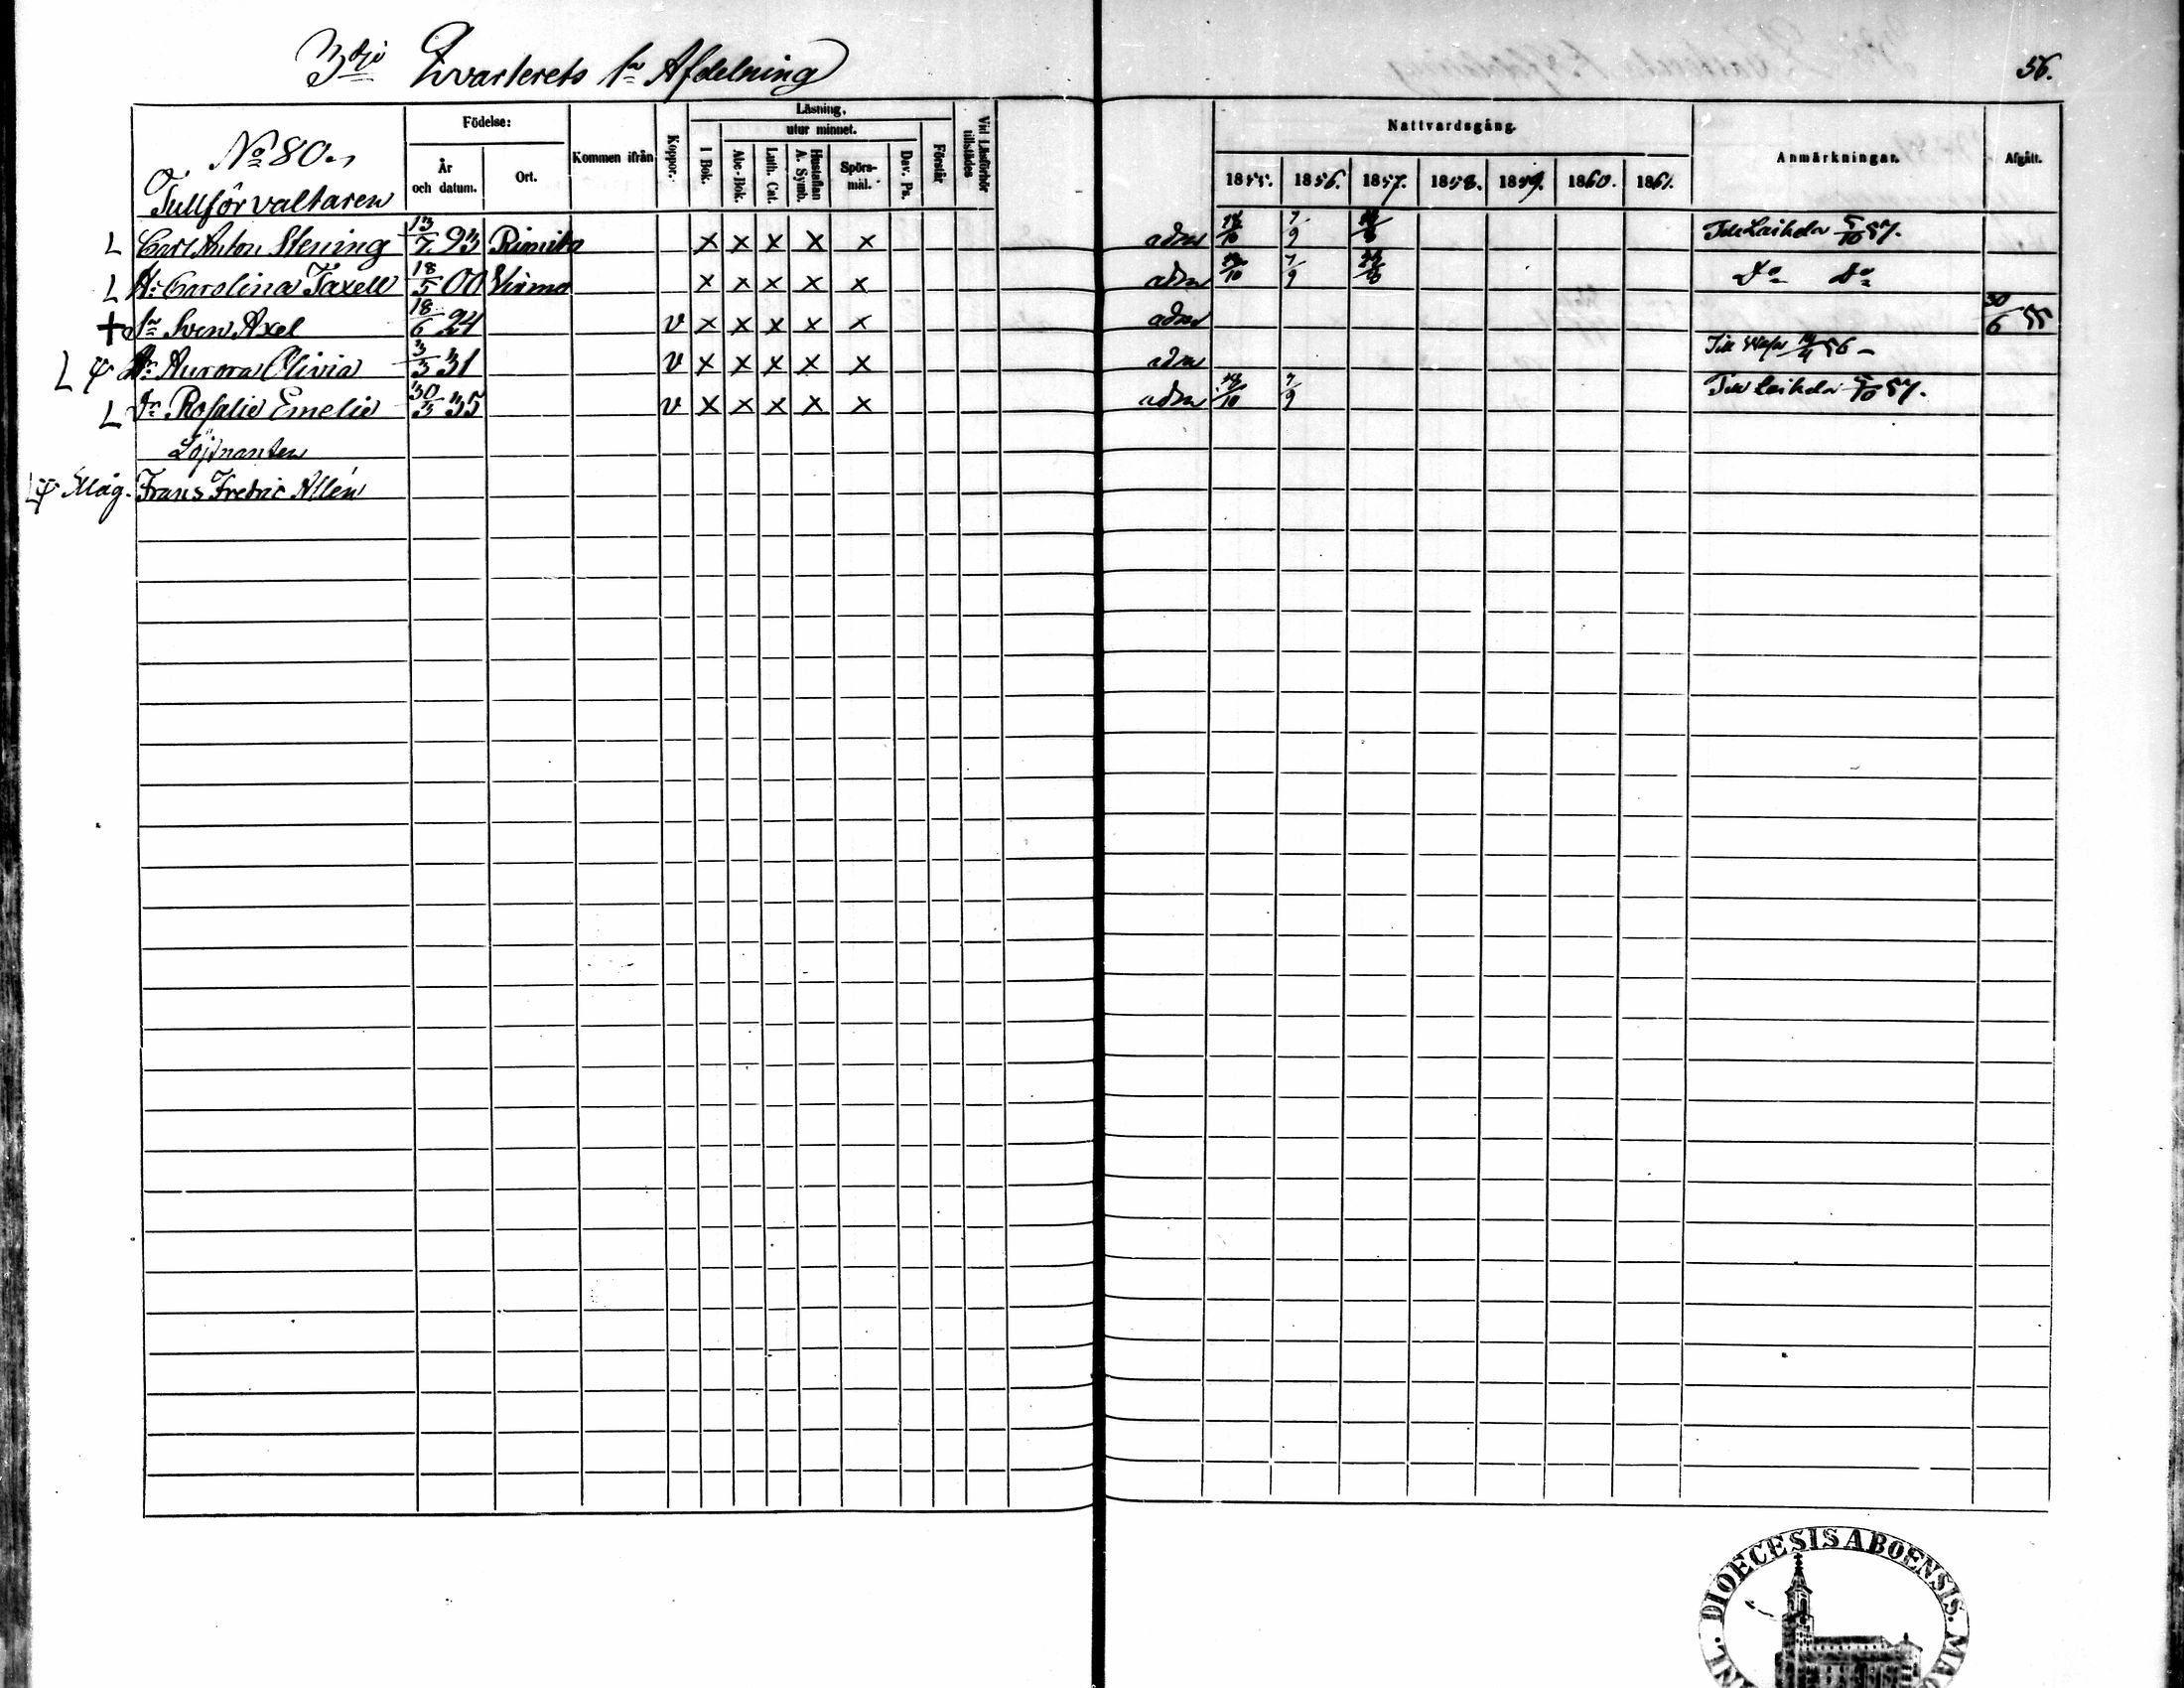 3dje Qvarterets 1a Afdelning
56.
No 80.
Tullförvaltaren
Födelse:
År och datum.
Ort.
Kommen ifrån
Koppor.
Läsning.
I Bok.
utur minnet.
Abc-Bok.
Luth. Cat.
Hustaflan A. Symb.
Spörsmål.
Dav. Ps.
Förstår
Vid Läsförhör tillstädes
Nattvardsgång.
1855. 1856. 1857. 1858. 1859. 1860. 1861.
Anmärkningar.
Afgått.
L Carl Anton Stening 13/7 93 Rimito x x x x x adm 7/9 Till Laihela 5/10 57.
L H: Carolina Taxell 18/5 00 Virmo x x x x x adm 7/9 Do Do
+ Sn Sven Axel 18/6 24 v x x x x x adm 30/6 55
L Dr Aurora Olivia 3/3 31 v x x x x x adm Till 56
L Dr Rosalie Emelie 30/3 35 v x x x x x adm 7/9 Till Laihela 5/10 57.
Löjtnanten
Måg. Frans Fredric Alfén
DIOECESIS ABOENSIS.